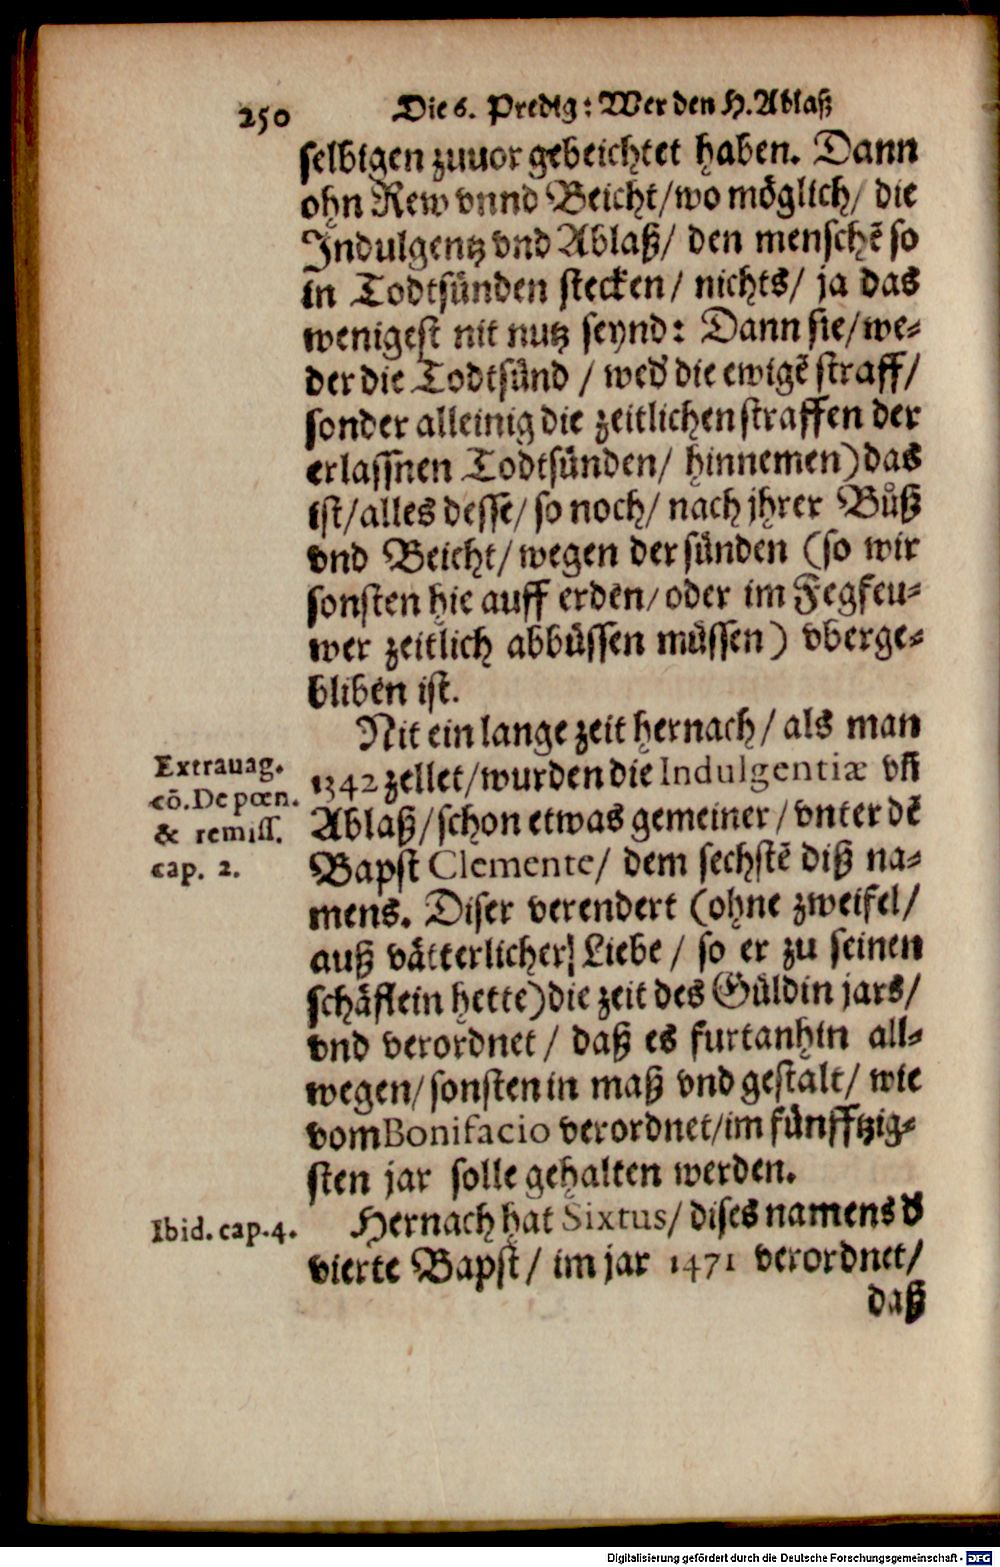 250 Die 6. Predig: Wer den H. Ablaß
selbigen zuuor gebeichtet haben. Dann
ohn Rew vnnd Beicht/ wo möglich/ die
Indulgentz vnd Ablaß/ den menschẽ so
in Todtsünden stecken/ nichts/ ja das
wenigest nit nutz seynd: Dann sie/ we-
der die Todtsünd / wed' die ewigẽ straff/
sonder alleinig die zeitlichen straffen der
erlassnen Todtsünden/ hinnemen) das
ist/ alles desse/ so noch/ nach jhrer Bůß
vnd Beicht/ wegen der sünden (so wir
sonsten hie auff erden/ oder im Fegfeu-
wer zeitlich abbüssen müssen) vberge-
bliben ist.
Nit ein lange zeit hernach/ als man
Extrauag.
1342 zellet/ wurden die Indulgentiæ vñ
cõ. De pœn.
Ablaß/ schon etwas gemeiner/ vnter dẽ
& remiss.
Bapst Clemente/ dem sechstẽ diß na-
cap. 2.
mens. Diser verendert (ohne zweifel/
auß vätterlicher Liebe / so er zu seinen
schäflein hette) die zeit des Güldin jars/
vnd verordnet / daß es furtanhin all-
wegen/ sonsten in maß vnd gestalt/ wie
vom Bonifacio verordnet/ im fünfftzig-
sten jar solle gehalten werden.
Ibid. cap. 4.
Hernach hat Sixtus/ dises namens d'
vierte Bapst/ im jar 1471 verordnet/
daß
Digitalisierung gefördert durch die Deutsche Forschungsgemeinschaft - DFG